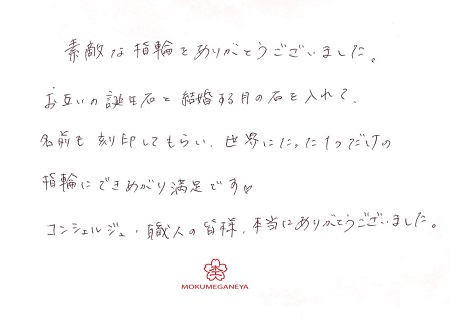 素敵な指輪をありがとうございました。
お互いの誕生石と結婚する月の石を入れて、
名前も刻印してもらい、世界にたった1つだけの
指輪にできあがり満足です♡
コンシェルジュ・職人の皆様、本当にありがとうございました。
MOKUMEGANEYA